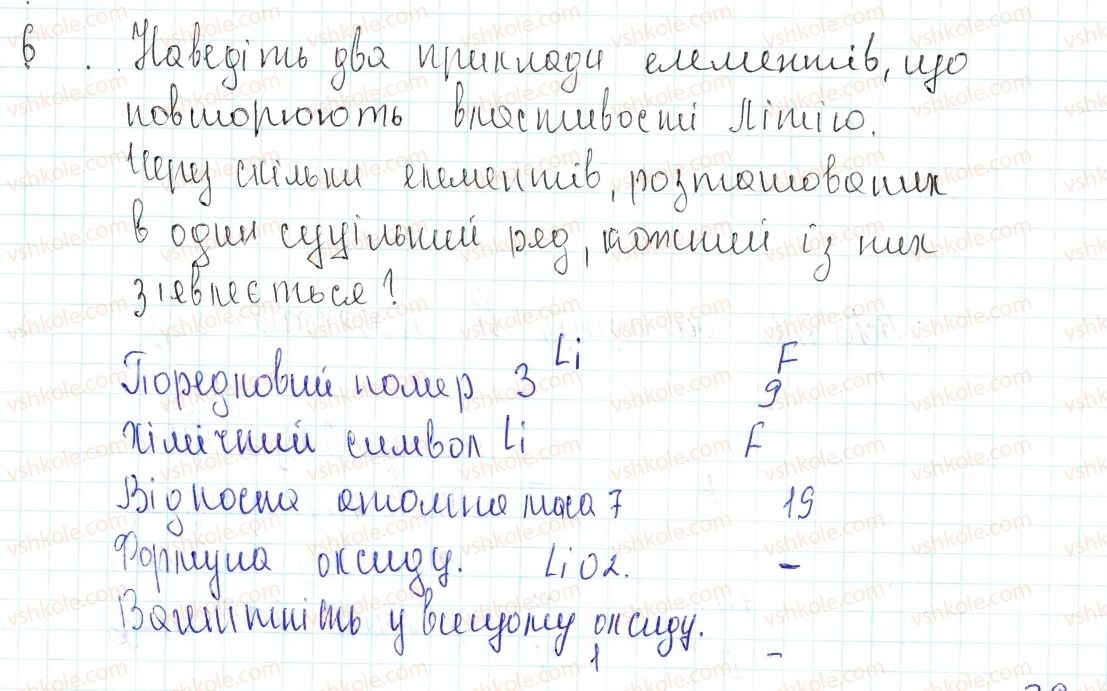 6. Наведіть два приклади елементів, що
повторюють властивості Літію.
Через скільки елементів, розташованих
в один суцільний ряд, кожний із них
з'являється?
Li F
Порядковий номер 3 9
Хімічний символ Li F
Відносна атомна маса 7 19
Формула оксиду. LiO2. -
Валентність у вищому оксиду.
1 -
vshkole.com